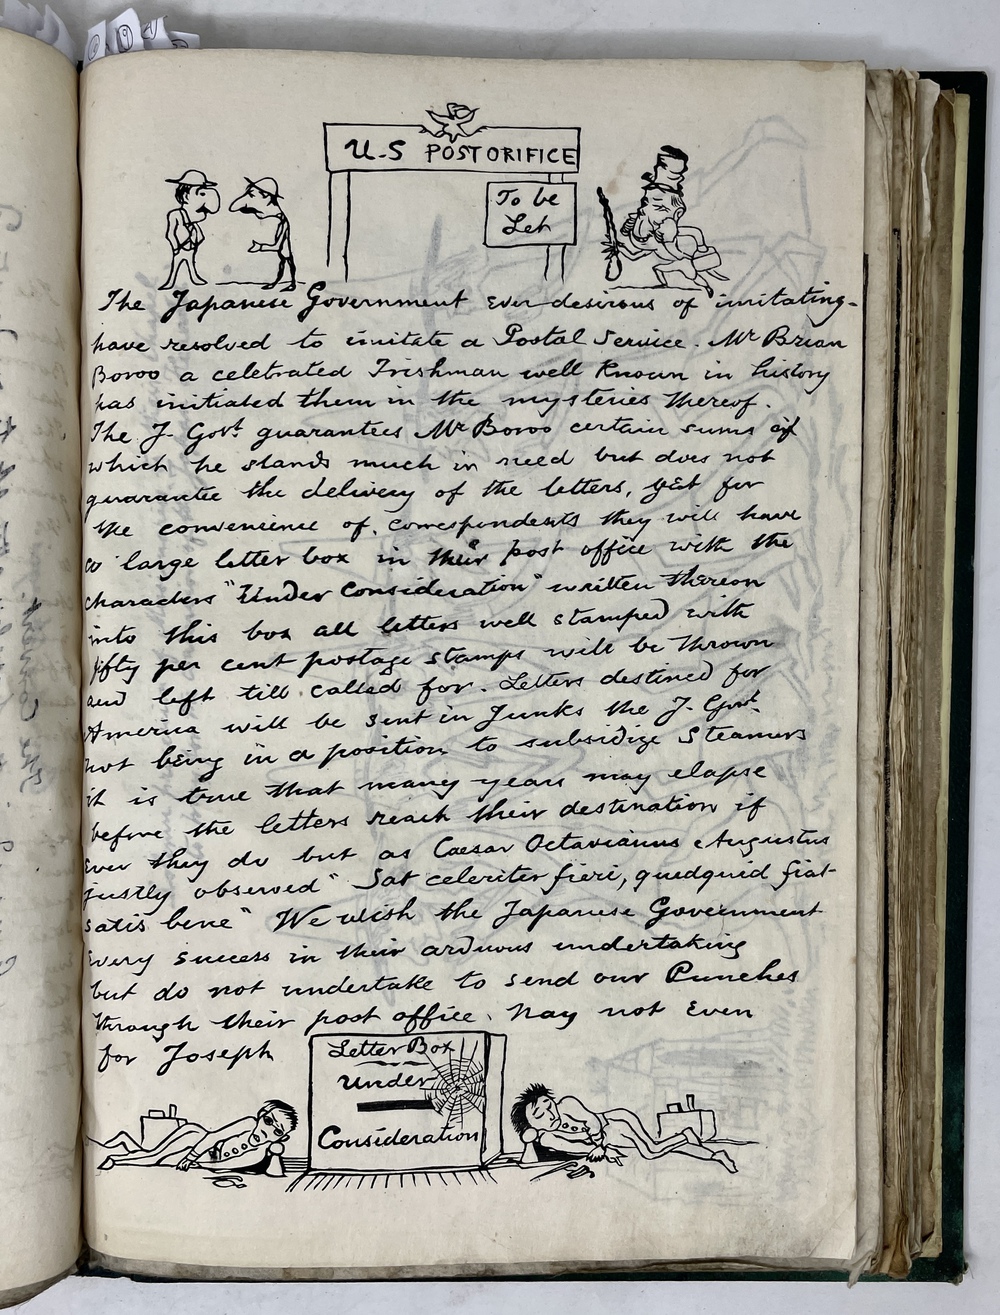 U.S POSTORIFICE
To be
Let
The Japanese Government ever desirous of imitating-
have resolved to imitate a Postal Service. Mr Brian
Boroo a celebrated Irishman well known in history
has initiated them in the mysteries thereof.
The J. Govt guarantees Mr Boroo certain sums of
which he stands much in need but does not
guarantee the delivery of the letters, yet for
the convenience of correspondents they will have
a large letter box in their post office with the
characters "Under Consideration" written thereon
into this box all letters well stamped with
fifty per cent postage stamps will be thrown
and left till called for. Letters destined for
America will be sent in Junks the J. Govt.
not being in a position to subsidize Steamers
it is true that many years may elapse
before the letters reach their destination if
ever they do but as Caesar Octavianus Augustus
justly observed "Sat celeriter fieri, quidquid fiat
satis bene" We wish the Japanese Government
every success in their arduous undertaking
but do not undertake to send our Punches
through their post office. Nay not even
for Joseph
Letter Box
Under
Consideration